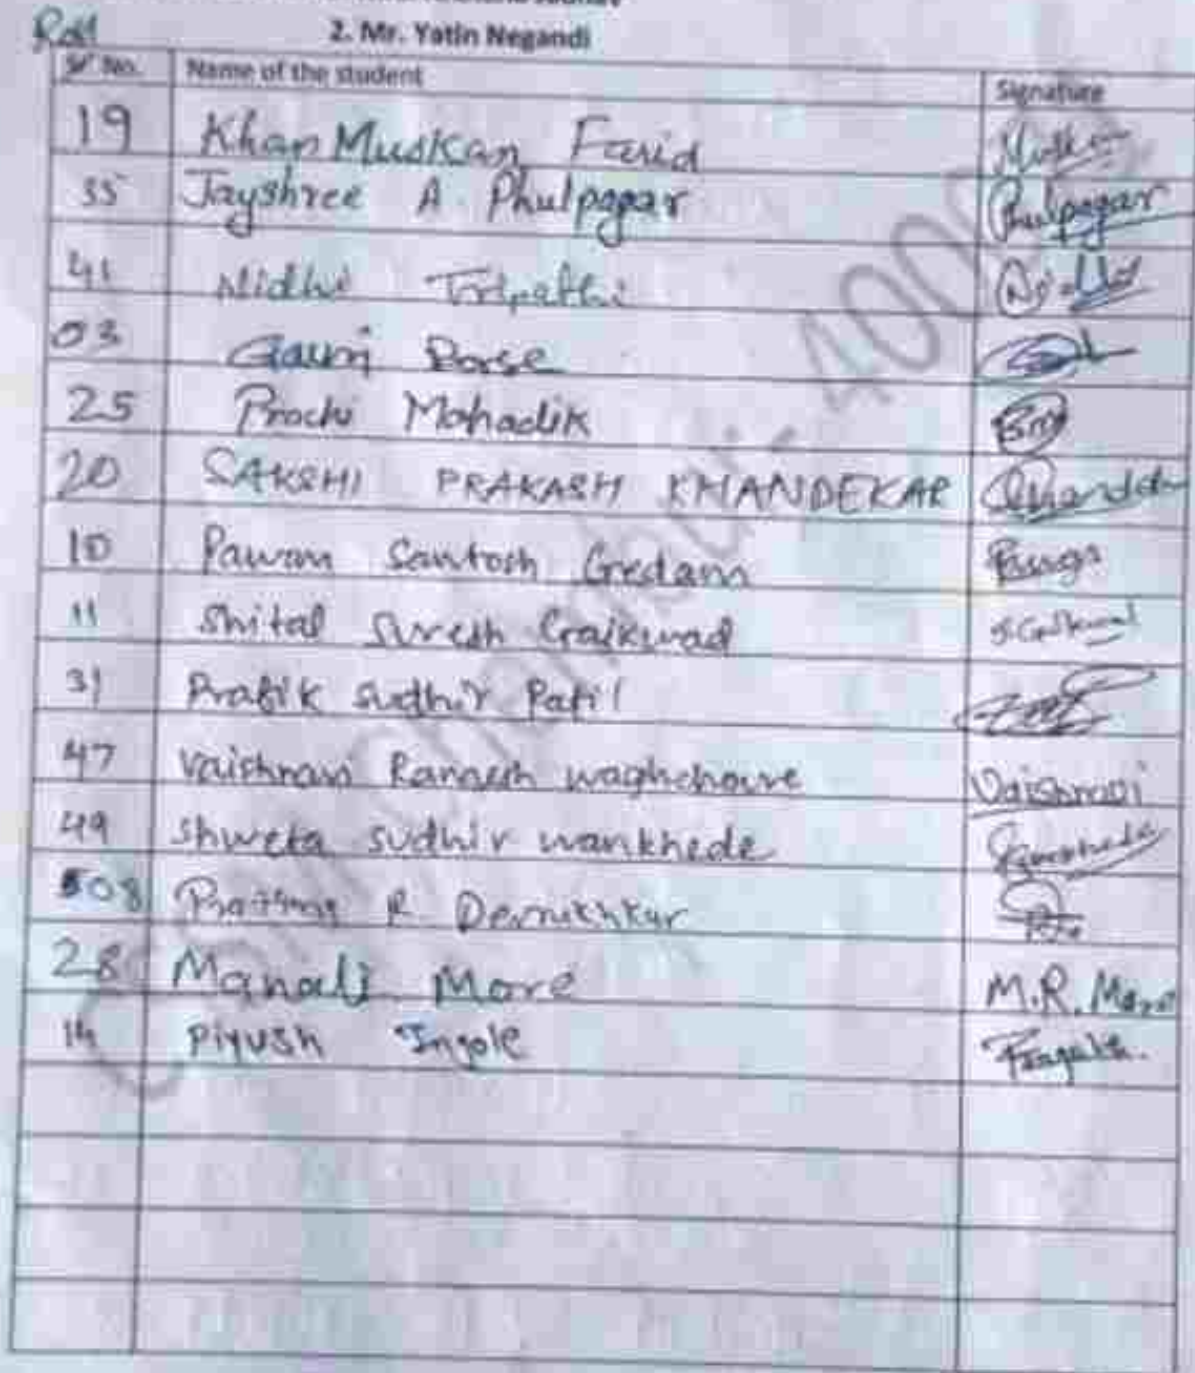 2. Mr. Yatin Negandi
Roll
Sr No. Name of the student Signature
19 Khan Muskan Farid
35 Jayshree A Phulpagar Phulpagar
41 Nidhi Tripathi
03 Gauri Borse
25 Prachi Mahadik
20 SAKSHI PRAKASH KHANDEKAR
10 Pawan Santosh Gedam
11 Shital Suresh Gaikwad
31 Pratik Sudhir Patil
47 Vaishnavi Ramesh waghchoure Vaishnavi
49 shweta sudhir wankhede
08 R.
28 Manali More M.R. More
14 Piyush Ingole